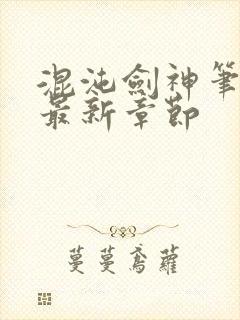 混沌劍神筆
最新章節
蔓蔓鳶蘿